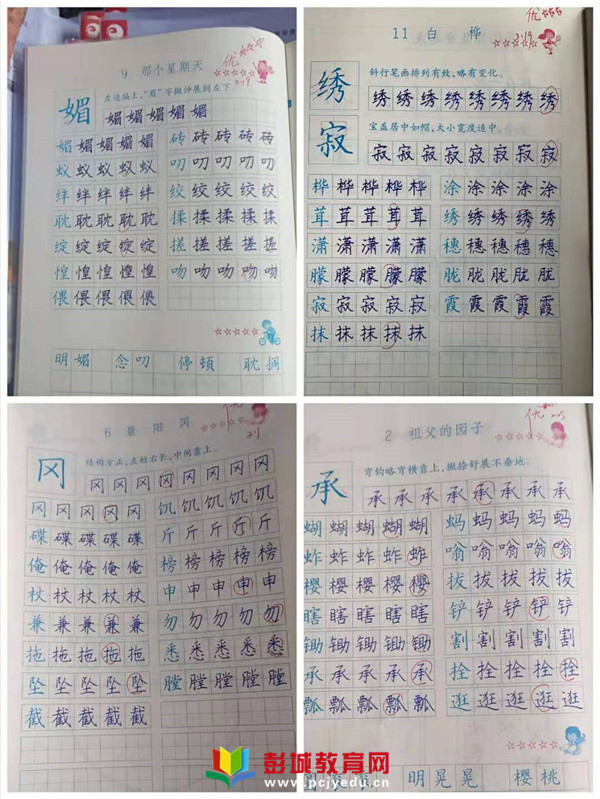 优
9 那个星期天
左边偏上,“眉”字撇伸展到左下
媚 媚媚媚媚媚
媚媚媚媚媚 砖砖砖砖砖
蚁蚁蚁蚁蚁 叨叨叨叨叨
绊绊绊绊绊 绞绞绞绞绞
耽耽耽耽耽 揉揉揉揉揉
绽绽绽绽绽 搓搓搓搓搓
惶惶惶惶惶 吻吻吻吻吻
偎偎偎偎偎
明媚 念叨 停顿 耽搁
优
11 白桦
斜行笔画排列有致,略有变化。
绣 绣绣绣绣绣绣绣绣
宝盖居中如帽,大小宽度适中。
寂 寂寂寂寂寂寂寂寂
桦桦桦桦桦 涂涂涂涂涂
茸茸茸茸茸 绣绣绣绣绣
潇潇潇潇潇 穗穗穗穗穗
朦朦朦朦朦 胧胧胧胧胧
寂寂寂寂寂 霞霞霞霞霞
抹抹抹抹抹
优
6 景阳冈
结构方正,左短右长,中间靠上。
冈 冈冈冈冈冈冈冈冈
冈冈冈冈冈 饥饥饥饥饥
碟碟碟碟碟 斤斤斤斤斤
俺俺俺俺俺 榜榜榜榜榜
杖杖杖杖杖 申申申申申
兼兼兼兼兼 勿勿勿勿勿
拖拖拖拖拖 悉悉悉悉悉
坠坠坠坠坠 膛膛膛膛膛
截截截截截
优
2 祖父的园子
弯钩略弯横靠上,撇捺舒展不垂地。
承 承承承承承承承承
蝴蝴蝴蝴蝴 蚂蚂蚂蚂蚂
蚱蚱蚱蚱蚱 嗡嗡嗡嗡嗡
樱樱樱樱樱 拔拔拔拔拔
瞎瞎瞎瞎瞎 铲铲铲铲铲
锄锄锄锄锄 割割割割割
承承承承承 拴拴拴拴拴
瓢瓢瓢瓢瓢 逛逛逛逛逛
明晃晃 樱桃
彭城教育网
www.pcjyedu.cn